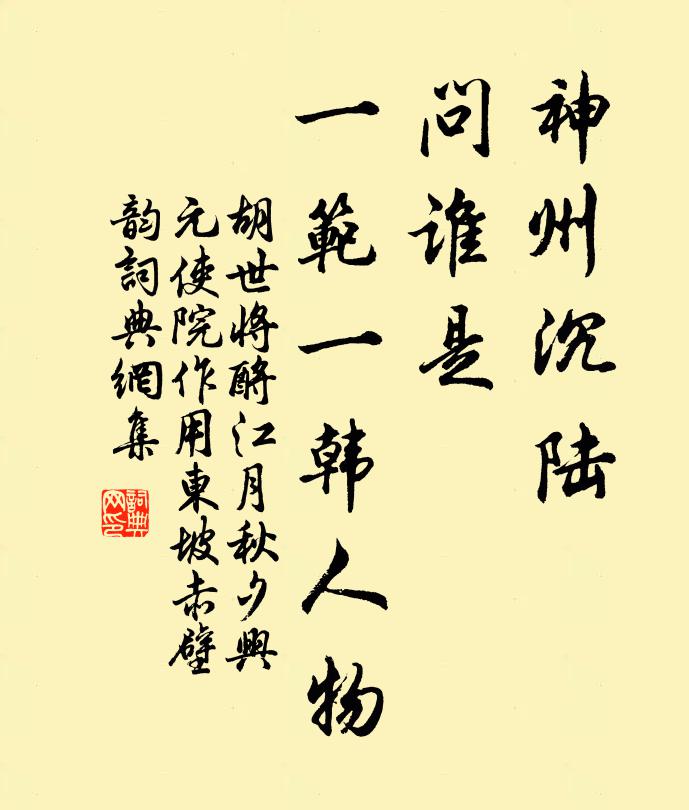 神州沉陆
问谁是
一範一韩人物
胡世将酹江月秋夕興
元使院作用東坡赤壁
韵詞典網集
詞典
网印